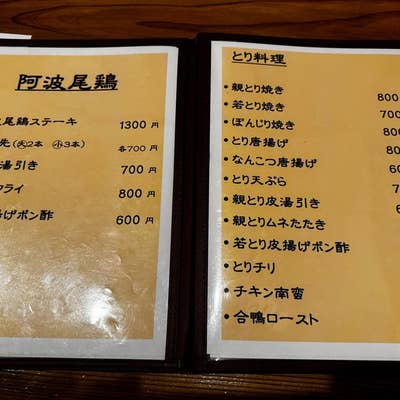 阿波尾鶏
尾鶏ステーキ 1300円
先(大2本 小3本) 各700円
湯引き 700円
フライ 800円
揚げポン酢 600円
とり料理
・親とり焼き 800
・若とり焼き 700
・ぼんじり焼き 80
・とり唐揚げ 80
・なんこつ唐揚げ 60
・とり天ぷら 7
・親とり皮湯引き 6
・親とりムネたたき
・若とり皮揚げポン酢
・とりチリ
・チキン南蛮
・合鴨ロースト